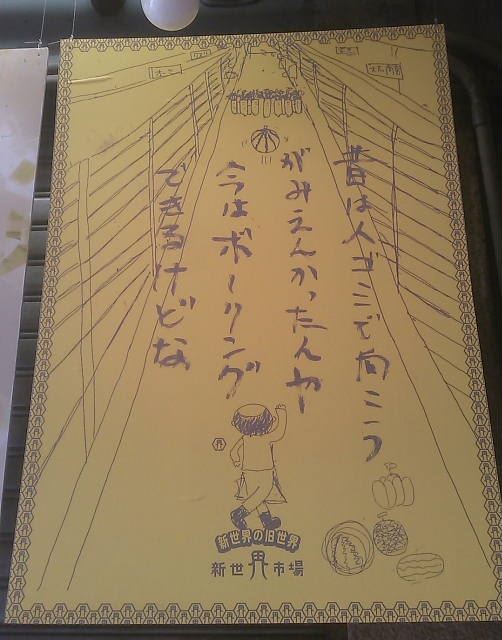 昔は人ゴミで向こう
がみえんかったんヤ
今はボーリング
できるけどな
新世界の旧世界
新世界市場